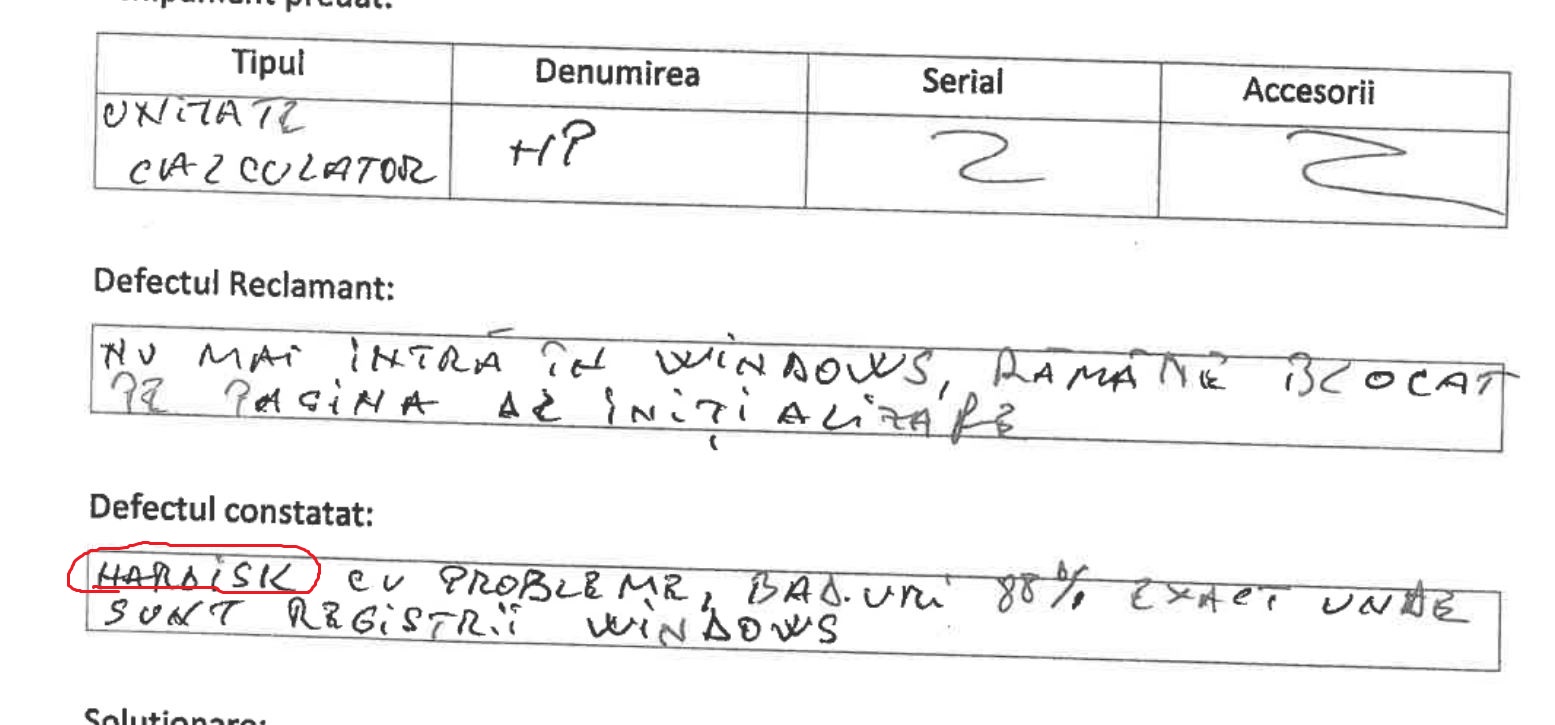 Tipul Denumirea Serial Accesorii
UNITATE HP
CALCULATOR
Defectul Reclamant:
NU MAI INTRĂ ÎN WINDOWS, RĂMÂNE BLOCAT
PE PAGINA DE INIȚIALIZARE
Defectul constatat:
HARDISK CU PROBLEME, BAD.URI 88% EXACT UNDE
SUNT REGISTRII WINDOWS